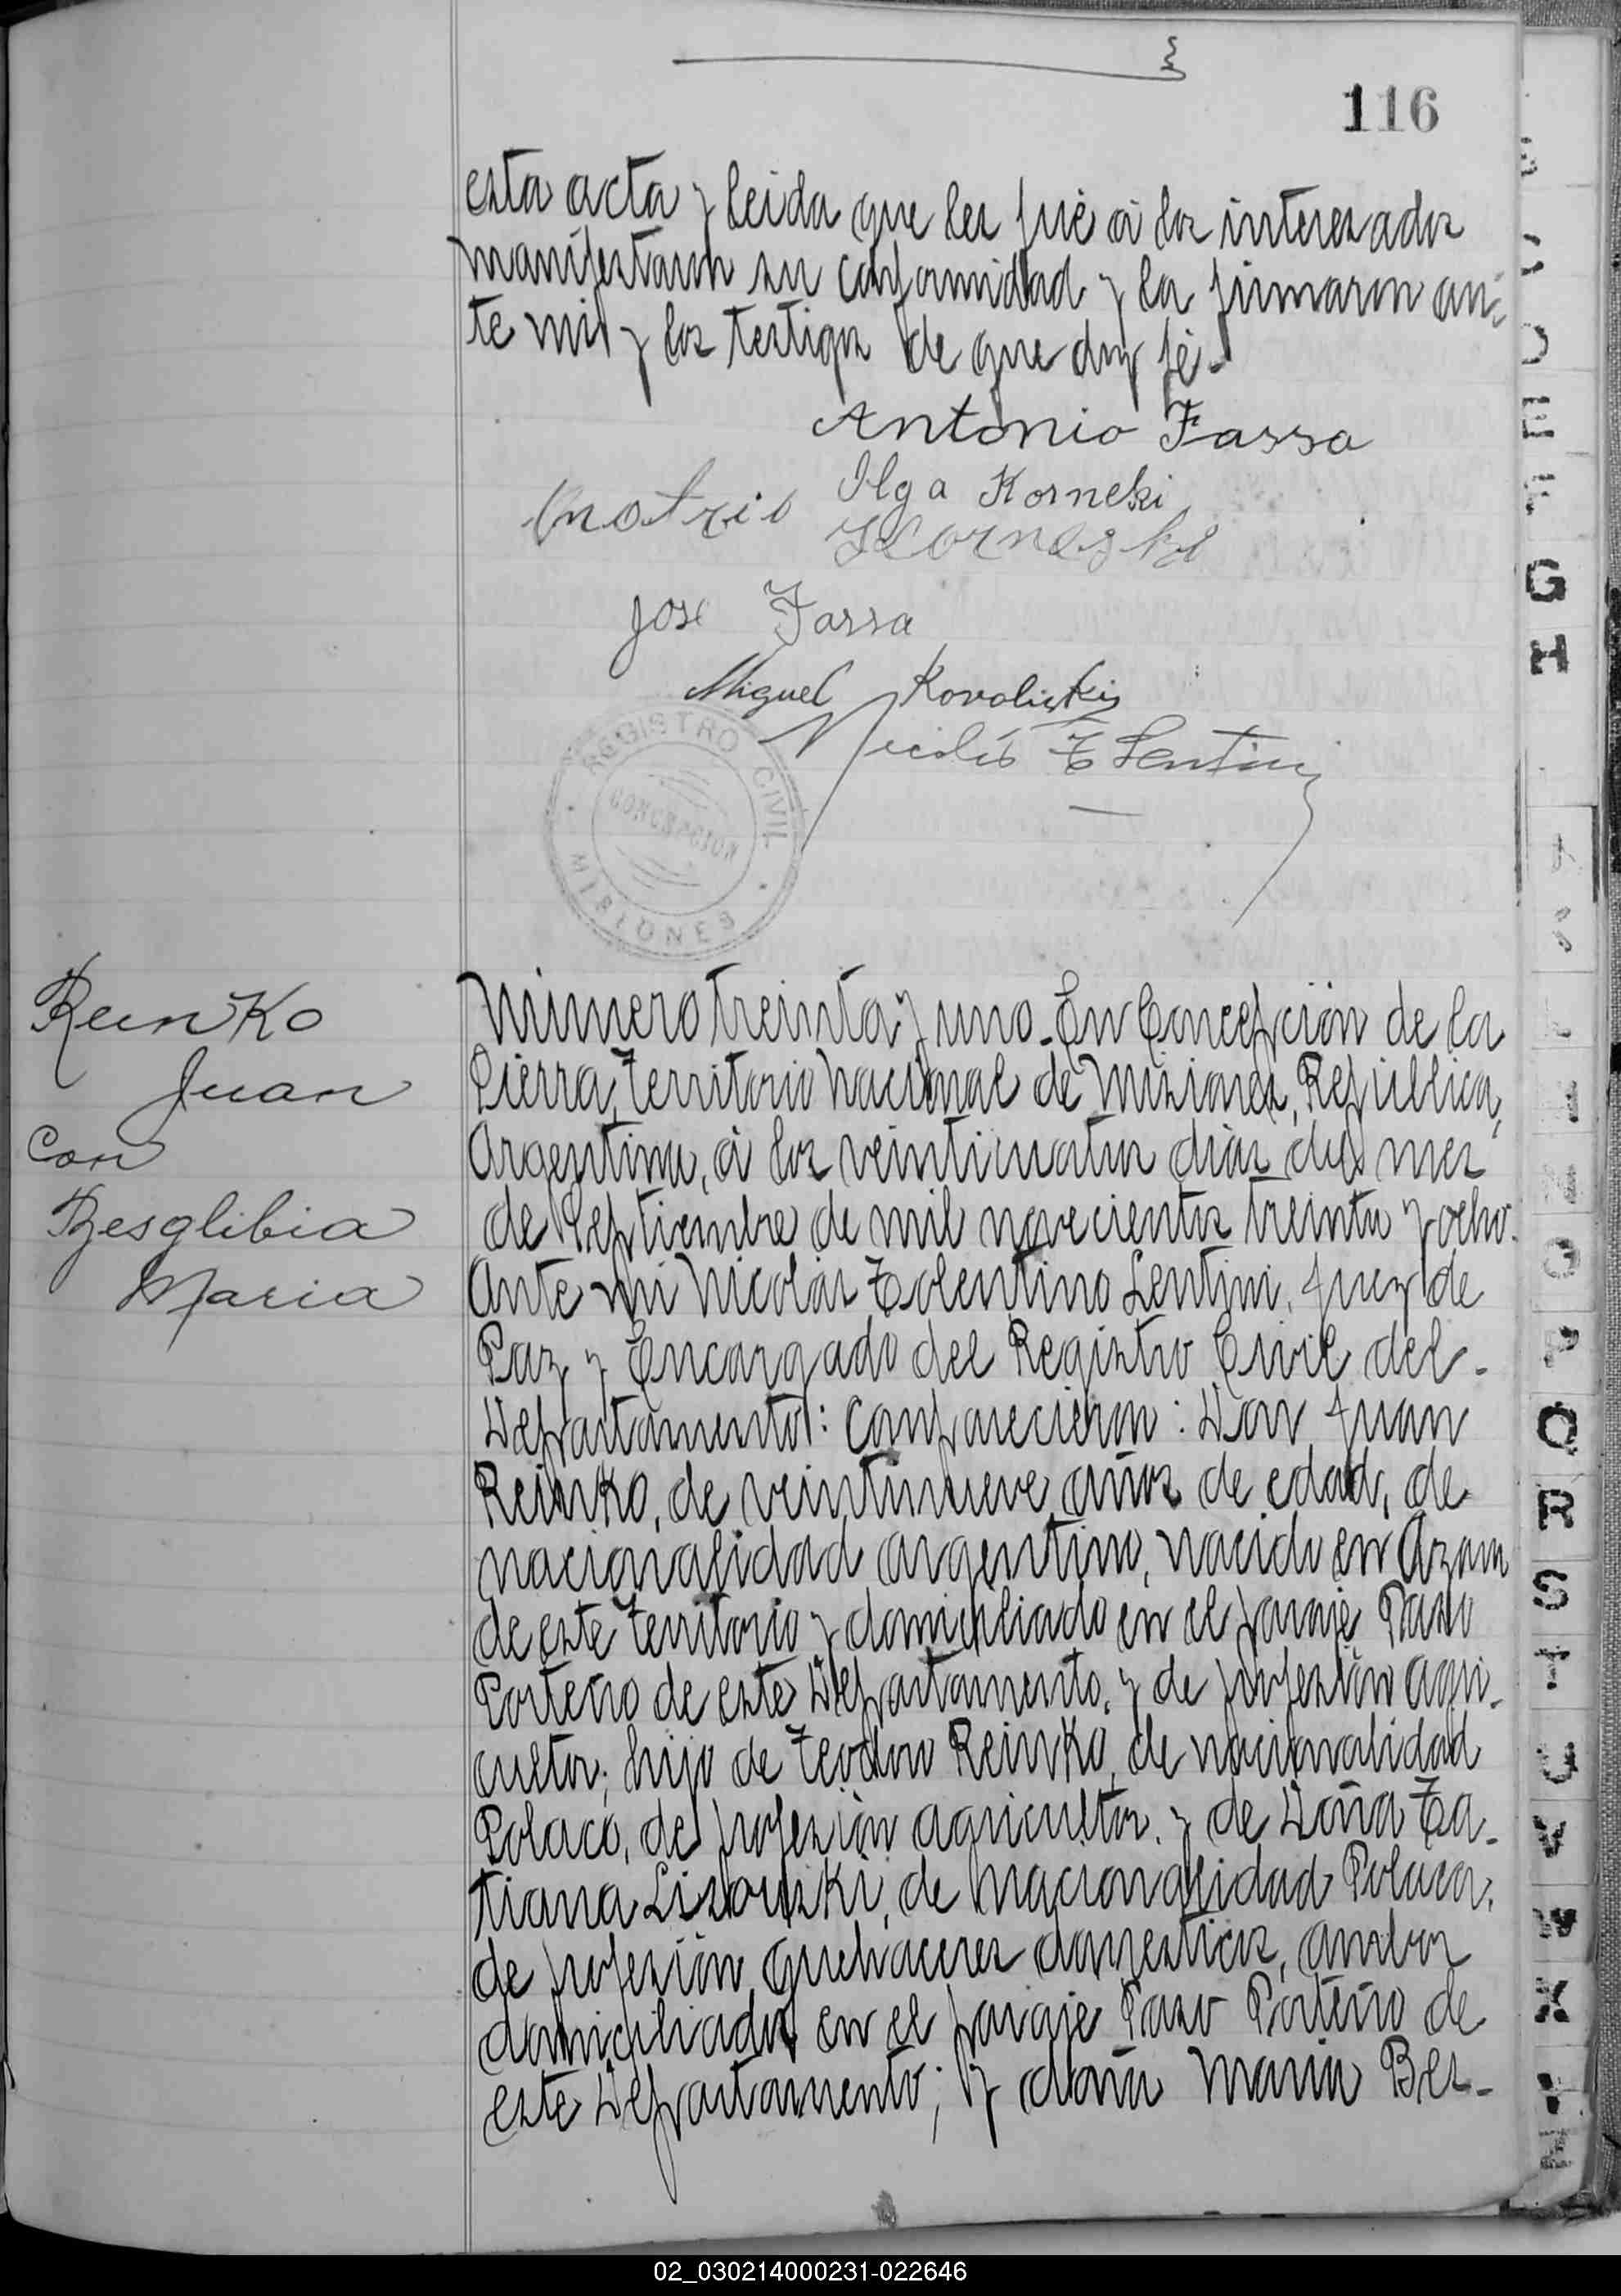 116
esta acta y leida que les fué á los interesados
manifestaron su conformidad y la firmaron an-
te mi y los testigos de que doy fé.-
Antonio Fassa
Ilga Korneski
José Fassa
Miguel
Nicolás T Lentini
REGISTRO CIVIL
CONCEPCION
MISIONES
Reinko
Juan
Con
Besglibia
Maria
Número treinta y uno - En Concepción de la
Sierra, Territorio Nacional de Misiones, República
Argentina, á los veinticuatro dias del mes
de Septiembre de mil novecientos treinta y ocho.
Ante mi Nicolás Tolentino Lentini, Juez de
Paz y Encargado del Registro Civil del-
Departamento: Comparecieron: Don Juan
Reinko, de veintinueve años de edad, de
nacionalidad argentino, nacido en Azara
de este Territorio y domiciliado en el paraje Paso
Porteño de este Departamento, y de profesión agri-
cultor; hijo de Teodoro Reinko, de nacionalidad
Polaco, de profesión agricultor, y de Doña Ta-
tiana Lisowski, de nacionalidad Polaca,
de profesión quehaceres domesticos, ambos
domiciliados en el paraje Paso Porteño de
este Departamento; y doña Maria Bes-
E
F
G
H
O
P
Q
R
S
T
U
V
W
X
Y
Z
02_030214000231-022646